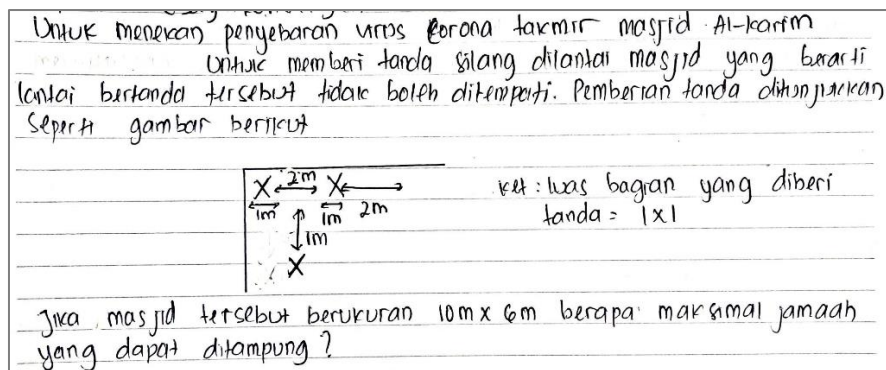 Untuk menekan penyebaran virus corona takmir masjid Al-karim
Untuk memberi tanda silang dilantai masjid yang berarti
lantai bertanda tersebut tidak boleh ditempati. Pemberian tanda ditunjukkan
seperti gambar berikut
X 2m X
1m 1m 2m
1m
X
ket : luas bagian yang diberi
tanda = 1x1
Jika masjid tersebut berukuran 10m x 6m berapa maksimal jamaah
yang dapat ditampung ?